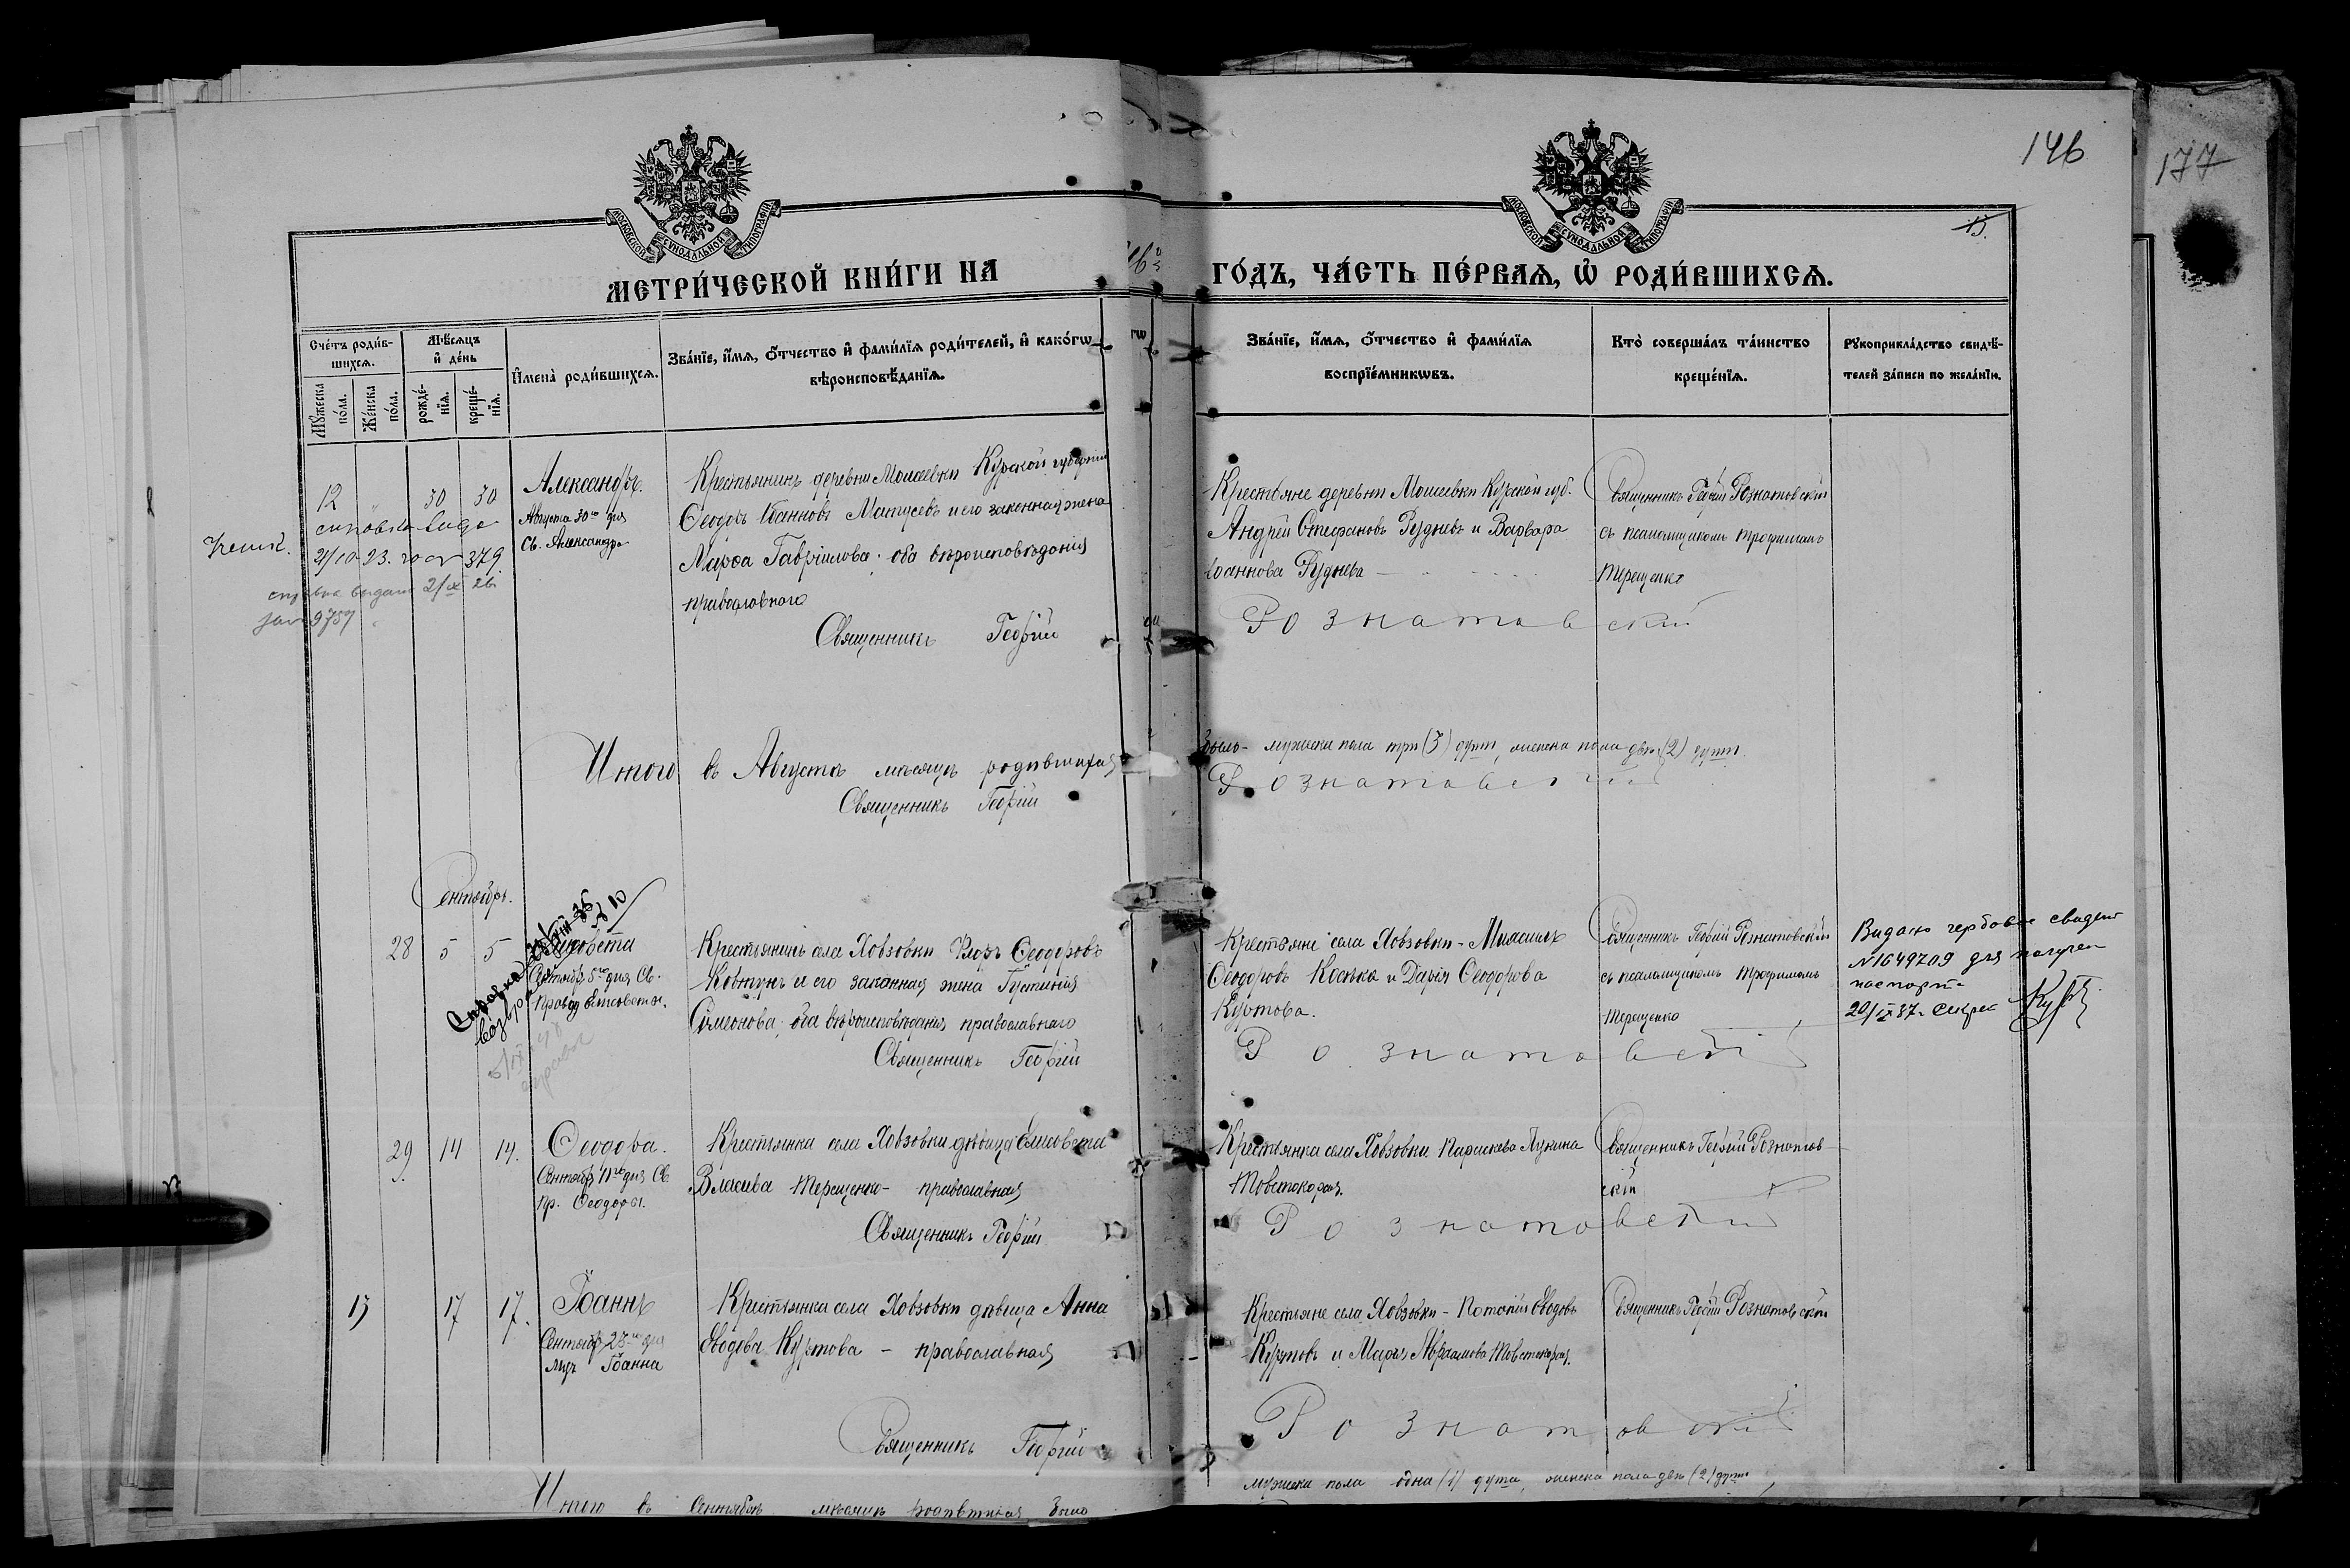 146
177
МОСКОВСКОЙ СѴНОДАЛЬНОЙ ТИПОГРАФІИ
МОСКОВСКОЙ СѴНОДАЛЬНОЙ ТИПОГРАФІИ
15.
МЕТРИ́ЧЕСКОЙ КНИ́ГИ НА
ГО́ДЪ, ЧА́СТЬ ПЕ́РВАѦ, Ѡ҆ РОДИ́ВШИХСѦ.
Сче́тъ роди́в-
шихсѧ.
Мꙋ́жеска по́ла.
Же́нска по́ла.
Мѣ́сѧцъ
и҆ де́нь
рожде́-
нїѧ.
креще́-
нїѧ.
И҆мена̀ роди́вшихсѧ.
Зва́нїе, и҆́мѧ, ѻ҆́тчество и҆ фами́лїѧ роди́телей, и҆ како́гѡ
вѣроисповѣ́данїѧ.
Зва́нїе, и҆́мѧ, ѻ҆́тчество и҆ фами́лїѧ
воспрїе́мникѡвъ.
Кто̀ соверша́лъ та́инство
креще́нїѧ.
Рꙋкоприкла́дство свидѣ́-
телей за́писи по жела́нїю.
12 30 30
Александръ.
Августа 30го дня
Св. Александра
Крестьянинъ деревни Моисеевки Курской губерніи
Ѳеодоръ Іоанновъ Матусевъ и его законная жена
Марѳа Гавріилова; оба вѣроисповѣданія
православнаго
Священникъ Георгій
Крестьяне деревни Моисеевки Курской губ.
Андрей Стефановъ Рудневъ и Варвара
Іоаннова Руднева
Розматовскій
Священникъ Георгій Розматовскій
съ псаломщикомъ Трофимомъ
Терещенко
379
справка выдана 2/X 26
9757
Итого въ Августѣ мѣсяцѣ родившихся
Священникъ Георгій
было мужеска пола три (3) душъ, женска пола двѣ (2) душъ.
Розматовскій
Сентябрь.
28 5 5
Елисавета
Сентября 5го дня Св.
Прав. Елисаветы.
Справка
Крестьянинъ села Ховзовки Ѳеодоровъ
Ковтунъ и его законная жена Густинія
Сѵмеонова; оба вѣроисповѣданія православнаго
Священникъ Георгій
Крестьяне села Ховзовки
Ѳеодоровъ и Дарія Ѳеодорова
Куртова.
Розматовскій
Священникъ Георгій Розматовскій
съ псаломщикомъ Трофимомъ
Терещенко
Видано гербове свидет
N1649709 для получен
паспорта
20/IX 37г. Секрет
29 14 14.
Ѳеодора.
Сентября 11го дня Св.
Пр. Ѳеодоры.
Крестьянка села Ховзовки дѣвица Елисавета
Власіева Терещенко - православная
Священникъ Георгій
Крестьянка села Ховзовки Параскева Лукина
Товстокорая.
Розматовскій
Священникъ Георгій Розматов-
скій
13 17 17.
Іоаннъ
Сентября 23го дня
Іоанна
Крестьянка села Ховзовки дѣвица Анна
Еводова Куртова - православная
Священникъ Георгій
Крестьяне села Ховзовки - Потапій Еводовъ
Куртовъ и Марія Авраамова Товстокорая.
Розматовскій
Священникъ Георгій Розматовскій
Итого въ Сентябрѣ мѣсяцѣ родившихся было
мужеска пола одна (1) душа, женска пола двѣ (2) души